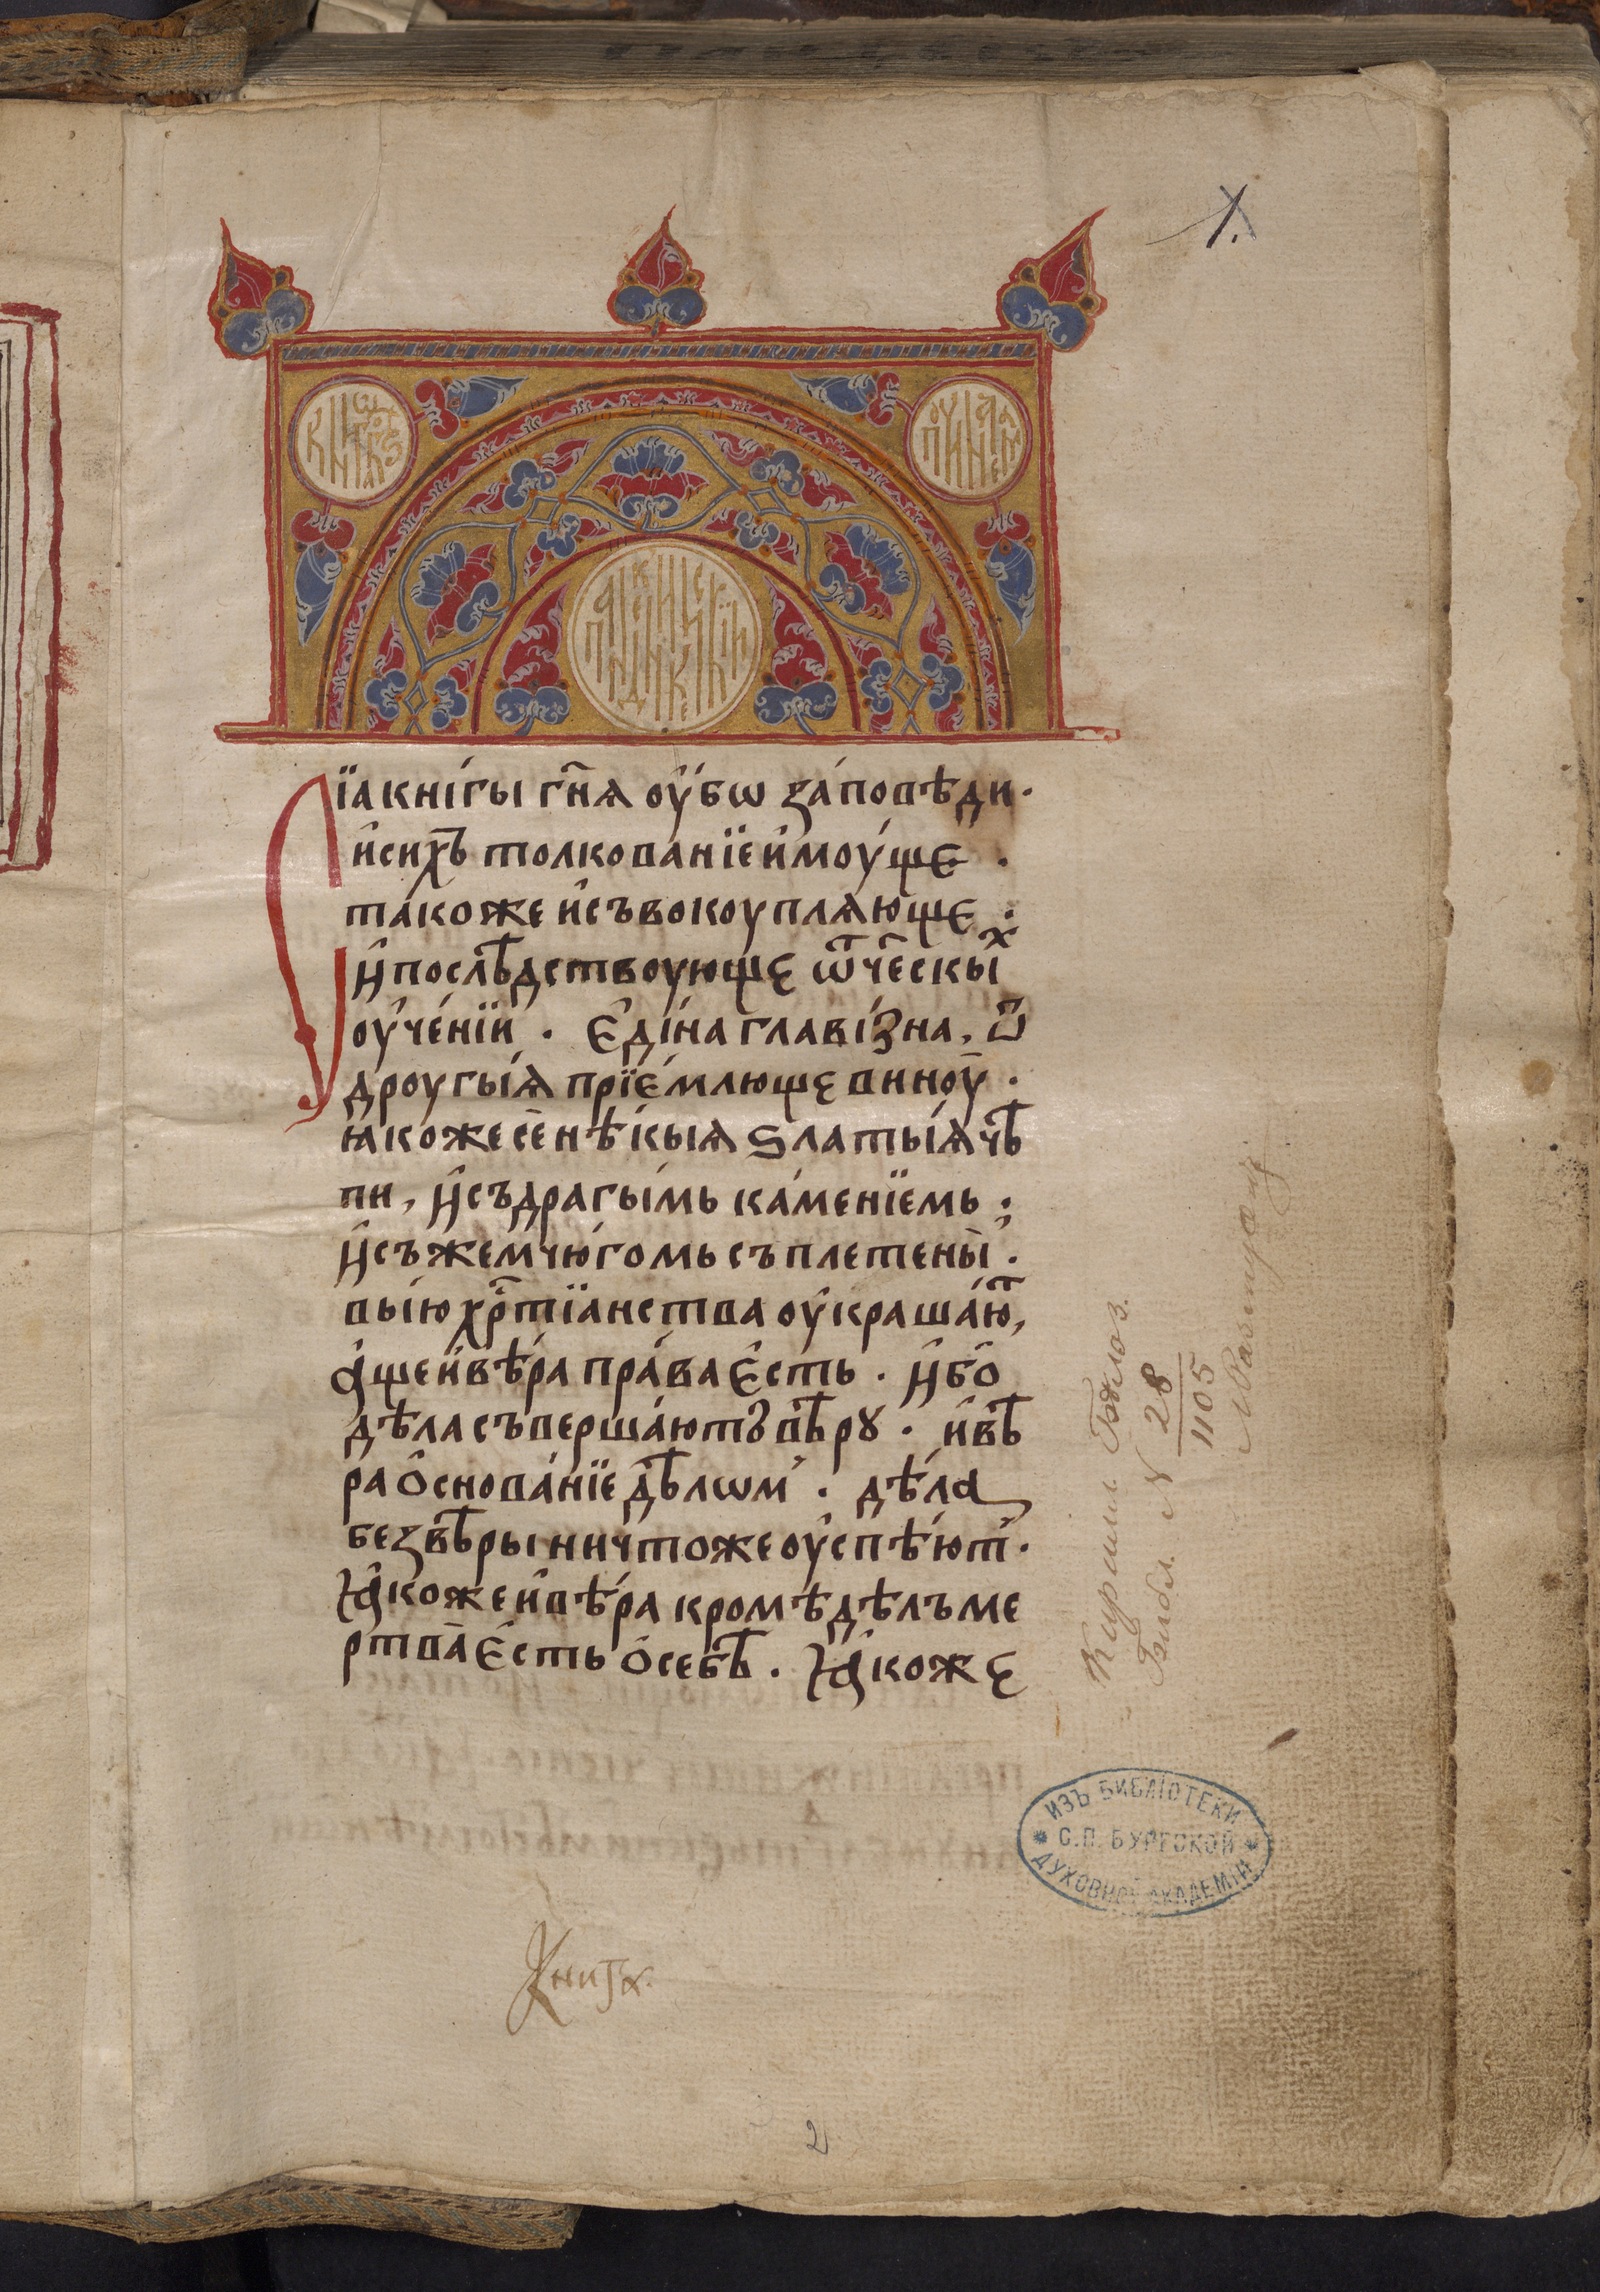 1.
Сїа кни́гы гн҃я оу҆́бѡ за́повѣди.
и҆ си́хъ толкова́нїе и҆моу́ще.
та́коже и҆ съвокоупля́юще.
и҆ послѣ́дствоующе ѿч҃ескы́х
оу҆че́нїи. Е҆ди́на глави́зна, ѿ
дроугы́я прїе҆́млюще виноу̀.
ꙗкоже сѐ нѣ́кыя ѕлаты́я чѣ
пи, и҆ съ драгы́мь ка́менїемь.
и҆ съ жемчю́гомь съплетены̀.
вы́ю хр҃тїанства оу҆краша́ют,
а҆́ще и҆ вѣ́ра пра́ва е҆́сть. и҆́бо
дѣла съверша́ютъ вѣ́рꙋ. и҆ вѣ́
ра ѻ҆снова́нїе дѣлѡм. дѣ́ла
без вѣ́ры ничтоже оу҆спѣ́ют.
Ꙗ҆́коже и҆ вѣ́ра кромѣ дѣ́лъ ме
ртва̀ е҆́сть ѻ҆ себѣ̀. Ꙗ҆́коже
Кирилл. Бѣлоз.
Библ. N 28
1105
ИЗЪ БИБЛІОТЕКИ
С.П.БУРГСКОЙ
ДУХОВНОЙ АКАДЕМІИ
Книга.
2